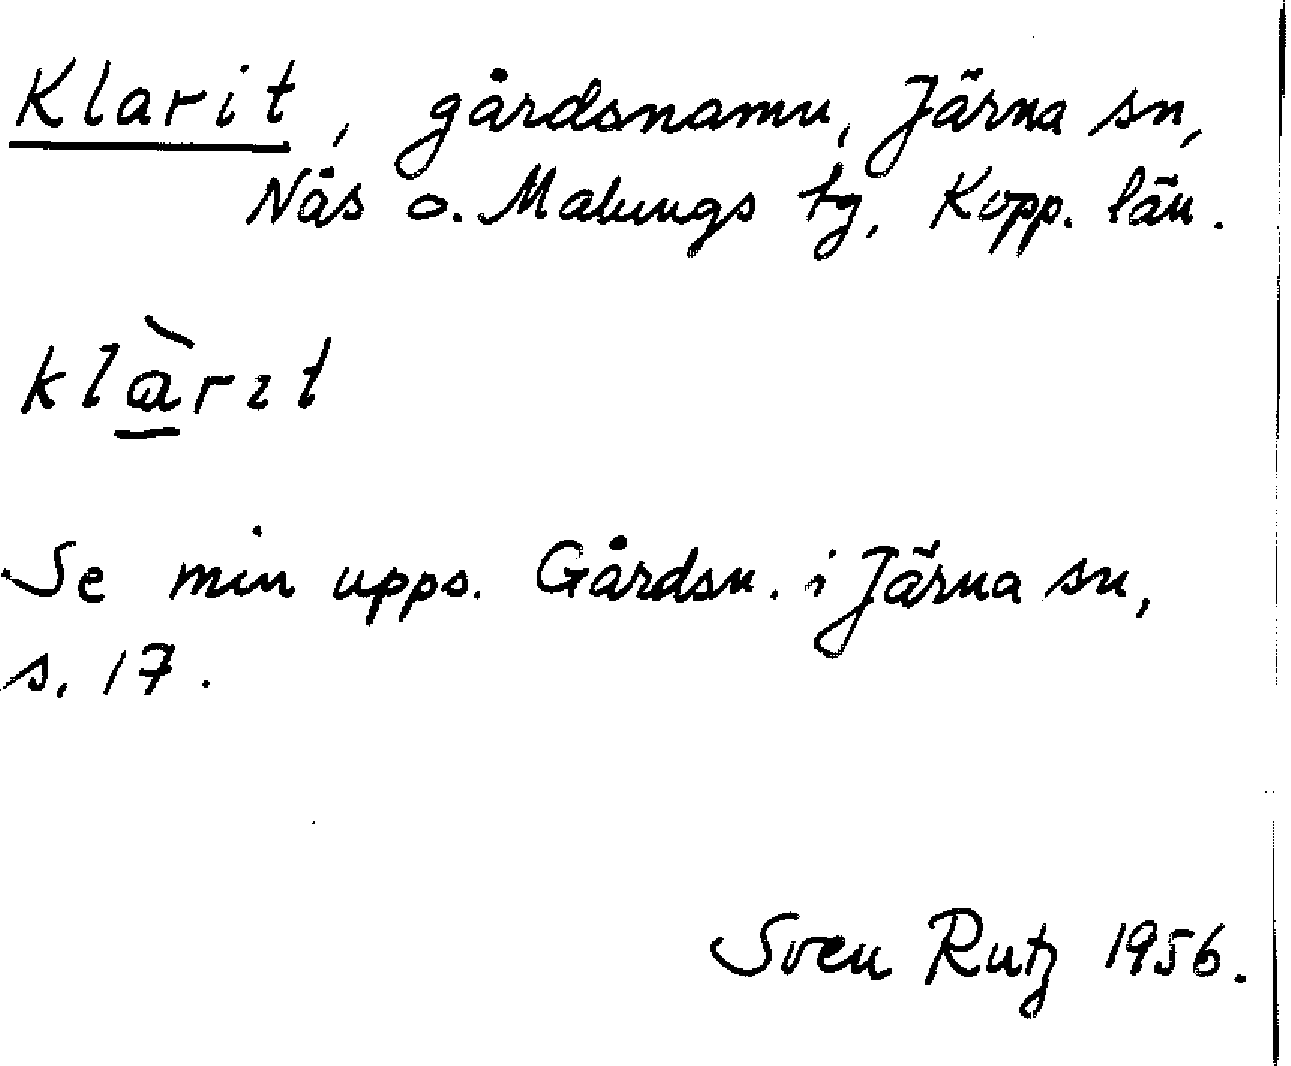 Klarit, gårdsnamn, Järna sn,
Näs o. Malungs tg, Kopp. län.
klàrıt
Se min upps. Gårdsn. i Järna sn,
s. 17.
Sven Rutz 1956.